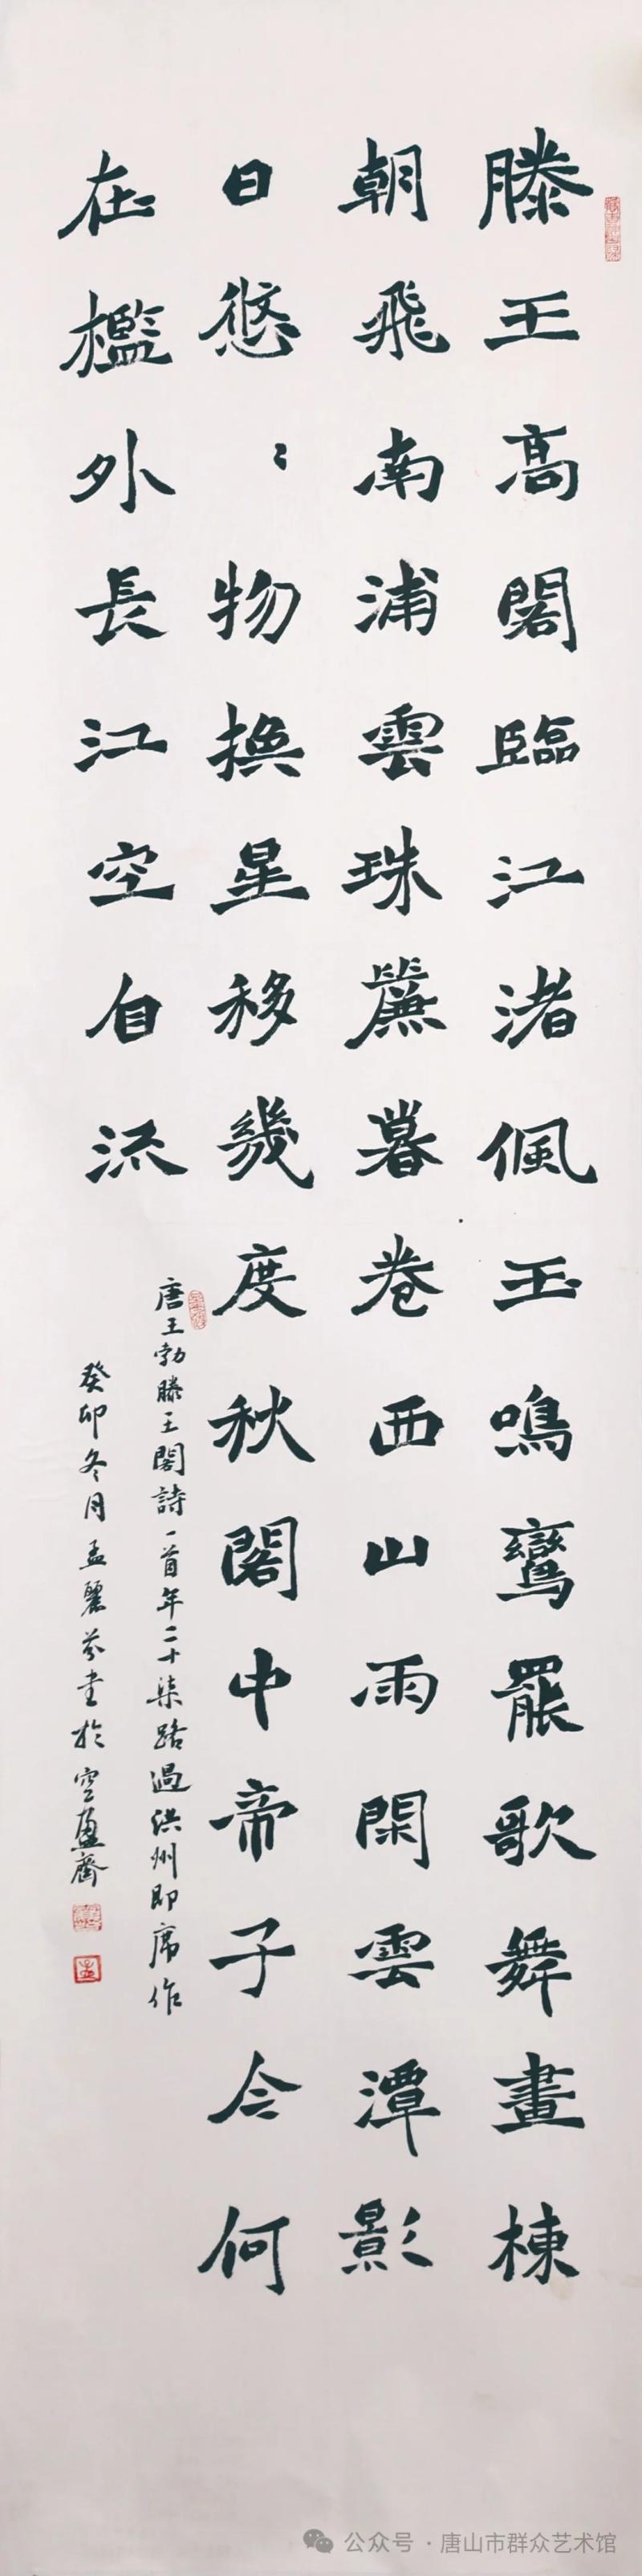 滕王高閣臨江渚佩玉鳴鸞罷歌舞畫棟
朝飛南浦雲珠簾暮卷西山雨閑雲潭影
日悠〻物換星移幾度秋閣中帝子今何
在檻外長江空自流
唐王勃滕王閣詩一首年二十柒路過洪州即席作
癸卯冬月孟麗芬書於空盈齋
公众号·唐山市群众艺术馆